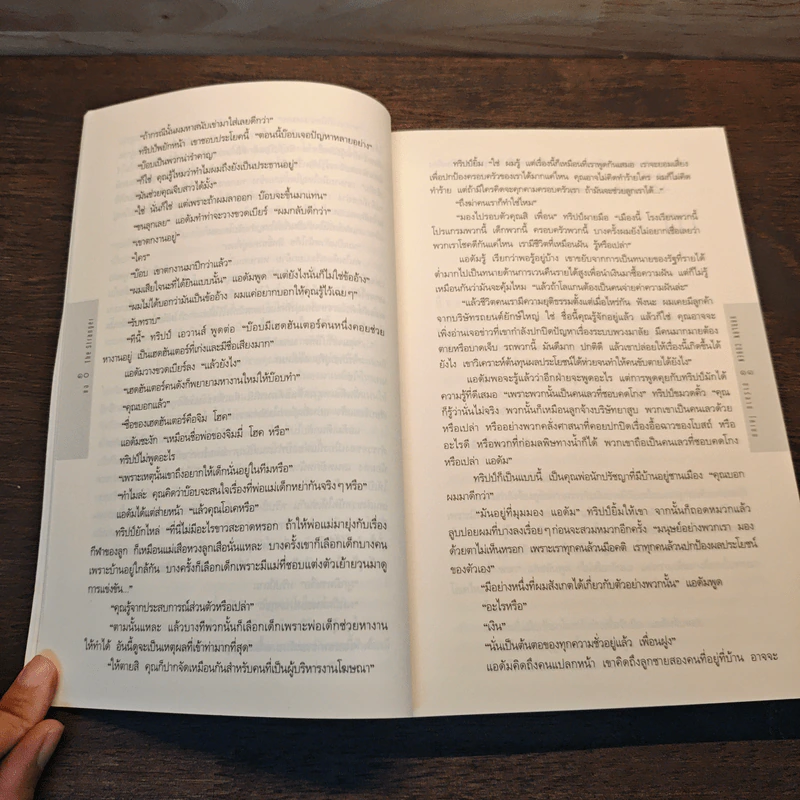 “ถ้ากรณีนั้นผมหาสนับเข่ามาใส่เลยดีกว่า”
ทริปป์พยักหน้า เขาชอบประโยคนี้ “ตอนนี้บ๊อบเจอปัญหาหลายอย่าง”
“บ๊อบเป็นพวกน่ารำคาญ”
“ก็ใช่ คุณรู้ไหมว่าทำไมผมถึงยังเป็นประธานอยู่”
“มันช่วยคุณจีบสาวได้มั้ง”
“ใช่ นั่นก็ใช่ แต่เพราะถ้าผมลาออก บ๊อบจะขึ้นมาแทน”
“ขนลุกเลย” แอดัมทำท่าจะวางขวดเบียร์ “ผมกลับดีกว่า”
“เขาตกงานอยู่”
“ใคร”
“บ๊อบ เขาตกงานมาปีกว่าแล้ว”
“ผมเสียใจนะที่ได้ยินแบบนั้น” แอดัมพูด “แต่ยังไงนั่นก็ไม่ใช่ข้ออ้าง”
“ผมไม่ได้บอกว่ามันเป็นข้ออ้าง ผมแค่อยากบอกให้คุณรู้ไว้เฉยๆ”
“รับทราบ”
“ทีนี้” ทริปป์ เอวานส์ พูดต่อ “บ๊อบมีเฮดฮันเตอร์คนหนึ่งคอยช่วย
หางานอยู่ เป็นเฮดฮันเตอร์ที่เก่งและมีชื่อเสียงมาก”
แอดัมวางขวดเบียร์ลง “แล้วยังไง”
“เฮดฮันเตอร์คนดังก็พยายามหางานใหม่ให้บ๊อบทำ”
“คุณบอกแล้ว”
“ชื่อของเฮดฮันเตอร์คือจิม โฮค”
แอดัมชะงัก “เหมือนชื่อพ่อของจิมมี่ โฮค หรือ”
ทริปป์ไม่พูดอะไร
“เพราะเหตุนั้นเขาถึงอยากให้เด็กนั่นอยู่ในทีมหรือ”
“ทำไมล่ะ คุณคิดว่าบ๊อบจะสนใจเรื่องที่พ่อแม่เด็กหย่ากันจริงๆ หรือ”
แอดัมได้แต่ส่ายหน้า “แล้วคุณโอเคหรือ”
ทริปป์ยักไหล่ “ที่นี่ไม่มีอะไรขาวสะอาดหรอก ถ้าให้พ่อแม่มายุ่งกับเรื่อง
กีฬาของลูก ก็เหมือนแม่เสือหวงลูกเสือนั่นแหละ บางครั้งเขาก็เลือกเด็กบางคน
เพราะบ้านอยู่ใกล้กัน บางครั้งก็เลือกเด็กเพราะมีแม่ที่ชอบแต่งตัวเย้ายวนมาดู
การแข่งขัน...”
“คุณรู้จากประสบการณ์ส่วนตัวหรือเปล่า”
“ตามนั้นแหละ แล้วบางทีพวกนั้นก็เลือกเด็กเพราะพ่อเด็กช่วยหางาน
ให้ทำได้ อันนี้ดูจะเป็นเหตุผลที่เข้าท่ามากที่สุด”
“ให้ตายสิ คุณก็ปากจัดเหมือนกันสำหรับคนที่เป็นผู้บริหารงานโฆษณา”
ทริปป์ยิ้ม “ใช่ ผมรู้ แต่เรื่องนี้ก็เหมือนที่เราพูดกันเสมอ เราจะยอมเสี่ยง
เพื่อปกป้องครอบครัวของเราได้มากแค่ไหน คุณอาจไม่คิดทำร้ายใคร ผมก็ไม่คิด
ทำร้าย แต่ถ้ามีใครคิดจะคุกคามครอบครัวเรา ถ้ามันจะช่วยลูกเราได้...”
“ถึงฆ่าคนเราก็ทำใช่ไหม”
“มองไปรอบตัวคุณสิ เพื่อน” ทริปป์ผายมือ “เมืองนี้ โรงเรียนพวกนี้
โปรแกรมพวกนี้ เด็กพวกนี้ ครอบครัวพวกนี้ บางครั้งผมยังไม่อยากเชื่อเลยว่า
พวกเราโชคดีกันแค่ไหน เรามีชีวิตที่เหมือนฝัน รู้หรือเปล่า”
แอดัมรู้ เรียกว่าพอรู้อยู่บ้าง เขาขยับจากการเป็นทนายของรัฐที่รายได้
ต่ำมากไปเป็นทนายด้านการเวนคืนรายได้สูงเพื่อนำเงินมาซื้อความฝัน แต่ก็ไม่รู้
เหมือนกันว่ามันจะคุ้มไหม “แล้วถ้าโลแกนต้องเป็นคนจ่ายค่าความฝันล่ะ”
“แล้วชีวิตคนเรามีความยุติธรรมตั้งแต่เมื่อไหร่กัน ฟังนะ ผมเคยมีลูกค้า
จากบริษัทรถยนต์ยักษ์ใหญ่ ใช่ ชื่อนี้คุณรู้จักอยู่แล้ว แล้วก็ใช่ คุณอาจจะ
เพิ่งอ่านเจอข่าวที่เขากำลังปกปิดปัญหาเรื่องระบบพวงมาลัย มีคนมากมายต้อง
ตายหรือบาดเจ็บ รถพวกนี้ มันดีมาก ปกติดี แล้วเขาปล่อยให้เรื่องนี้เกิดขึ้นได้
ยังไง เขาวิเคราะห์ต้นทุนผลประโยชน์ได้ห่วยจนทำให้คนขับตายได้ยังไง”
แอดัมพอจะรู้แล้วว่าอีกฝ่ายจะพูดอะไร แต่การพูดคุยกับทริปป์มักได้
ความรู้ที่ดีเสมอ “เพราะพวกนั้นเป็นคนเลวที่ชอบคดโกง” ทริปป์ขมวดคิ้ว “คุณ
ก็รู้ว่านั่นไม่จริง พวกนั้นก็เหมือนลูกจ้างบริษัทยาสูบ พวกเขาเป็นคนเลวด้วย
หรือเปล่า หรืออย่างพวกคลั่งศาสนาที่คอยปกปิดเรื่องอื้อฉาวของโบสถ์ หรือ
อะไรดี หรือพวกที่ก่อมลพิษทางน้ำก็ได้ พวกเขาถือเป็นคนเลวที่ชอบคดโกง
หรือเปล่า แอดัม”
ทริปป์ก็เป็นแบบนี้ เป็นคุณพ่อนักปรัชญาที่มีบ้านอยู่ชานเมือง “คุณบอก
ผมมาดีกว่า”
“มันอยู่ที่มุมมอง แอดัม” ทริปป์ยิ้มให้เขา จากนั้นก็ถอดหมวกแล้ว
ลูบปอยผมที่บางลงเรื่อยๆ ก่อนจะสวมหมวกอีกครั้ง “มนุษย์อย่างพวกเรา มอง
ด้วยตาไม่เห็นหรอก เพราะเราทุกคนล้วนมีอคติ เราทุกคนล้วนปกป้องผลประโยชน์
ของตัวเอง”
“มีอย่างหนึ่งที่ผมสังเกตได้เกี่ยวกับตัวอย่างพวกนั้น” แอดัมพูด
“อะไรหรือ”
“เงิน”
“นั่นเป็นต้นตอของทุกความชั่วอยู่แล้ว เพื่อนฝูง”
แอดัมคิดถึงคนแปลกหน้า เขาคิดถึงลูกชายสองคนที่อยู่ที่บ้าน อาจจะ